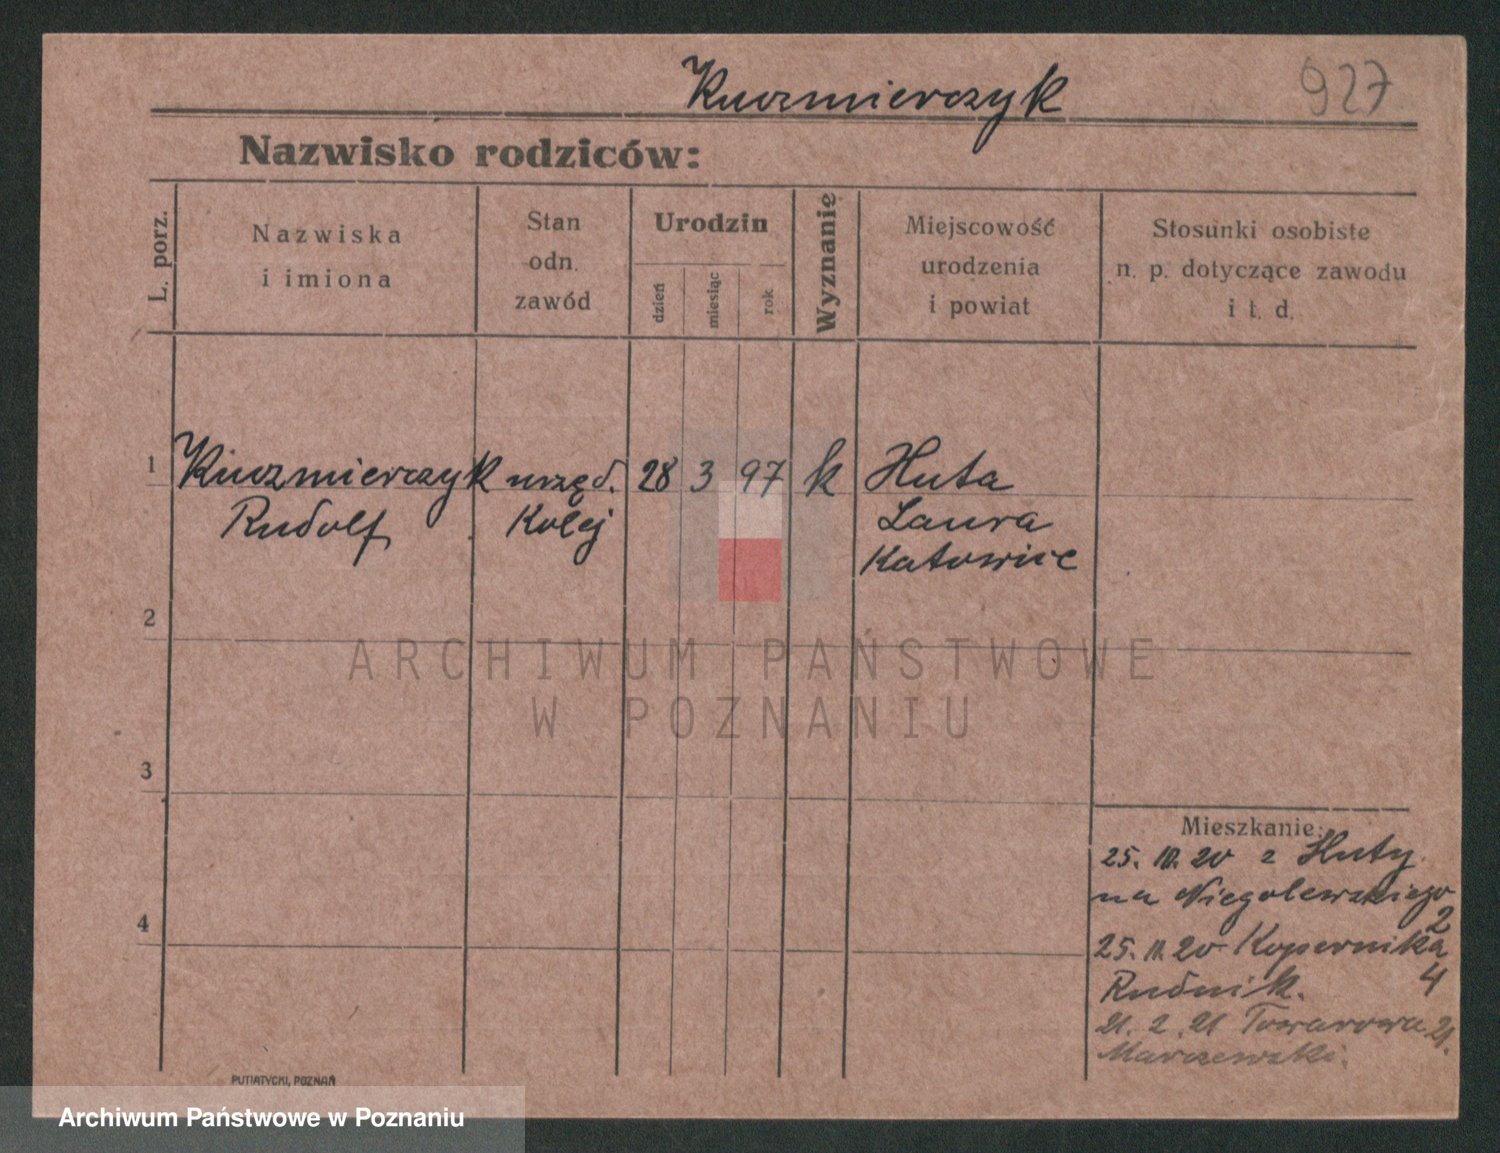 Kuczmierczyk 927
Nazwisko rodziców:
L. porz.
Nazwiska
i imiona
Stan
odn.
zawód
Urodzin
dzień
miesiąc
rok
Wyznanie
Miejscowość
urodzenia
i powiat
Stosunki osobiste
n. p. dotyczące zawodu
i t. d.
1 Kuczmierczyk urzęd. 28 3 97 k Huta
Rudolf Kolej Laura
Katowice
2
ARCHIWUM PAŃSTWOWE
W POZNANIU
3
Mieszkanie:
25. 10. 20 z Huty
na Niegolewskiego
2
4
25. 11. 20 Kopernika
4
Rudnik.
21. 2. 21 Towarowa 21.
Marszewski.
PUTIATYCKI, POZNAŃ
Archiwum Państwowe w Poznaniu